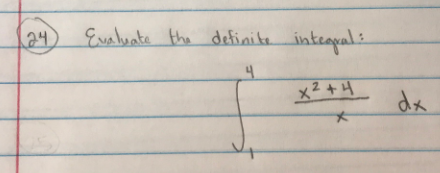 24 Evaluate the definite integral:
∫₁⁴ (x² + 4)/x dx